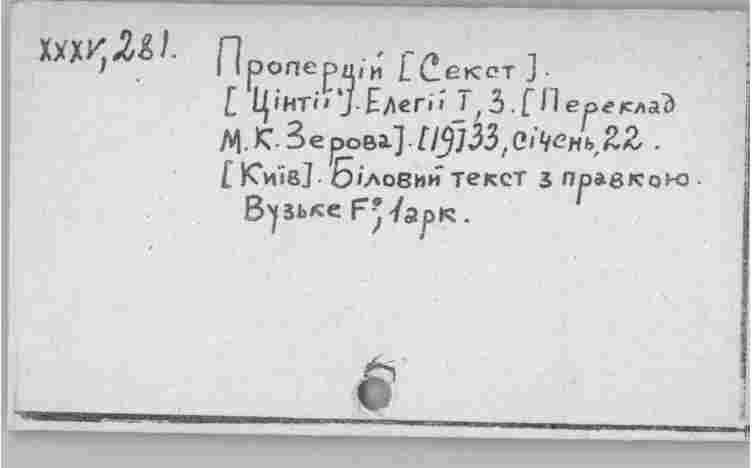 XXXV, 281.
Проперцій [Секст].
[Цінтії]. Елегії I, 3. [Переклад
М.К. Зерова]. [19]33, січень, 22.
[Київ]. Біловий текст з правкою.
Вузьке F°, 1 арк.